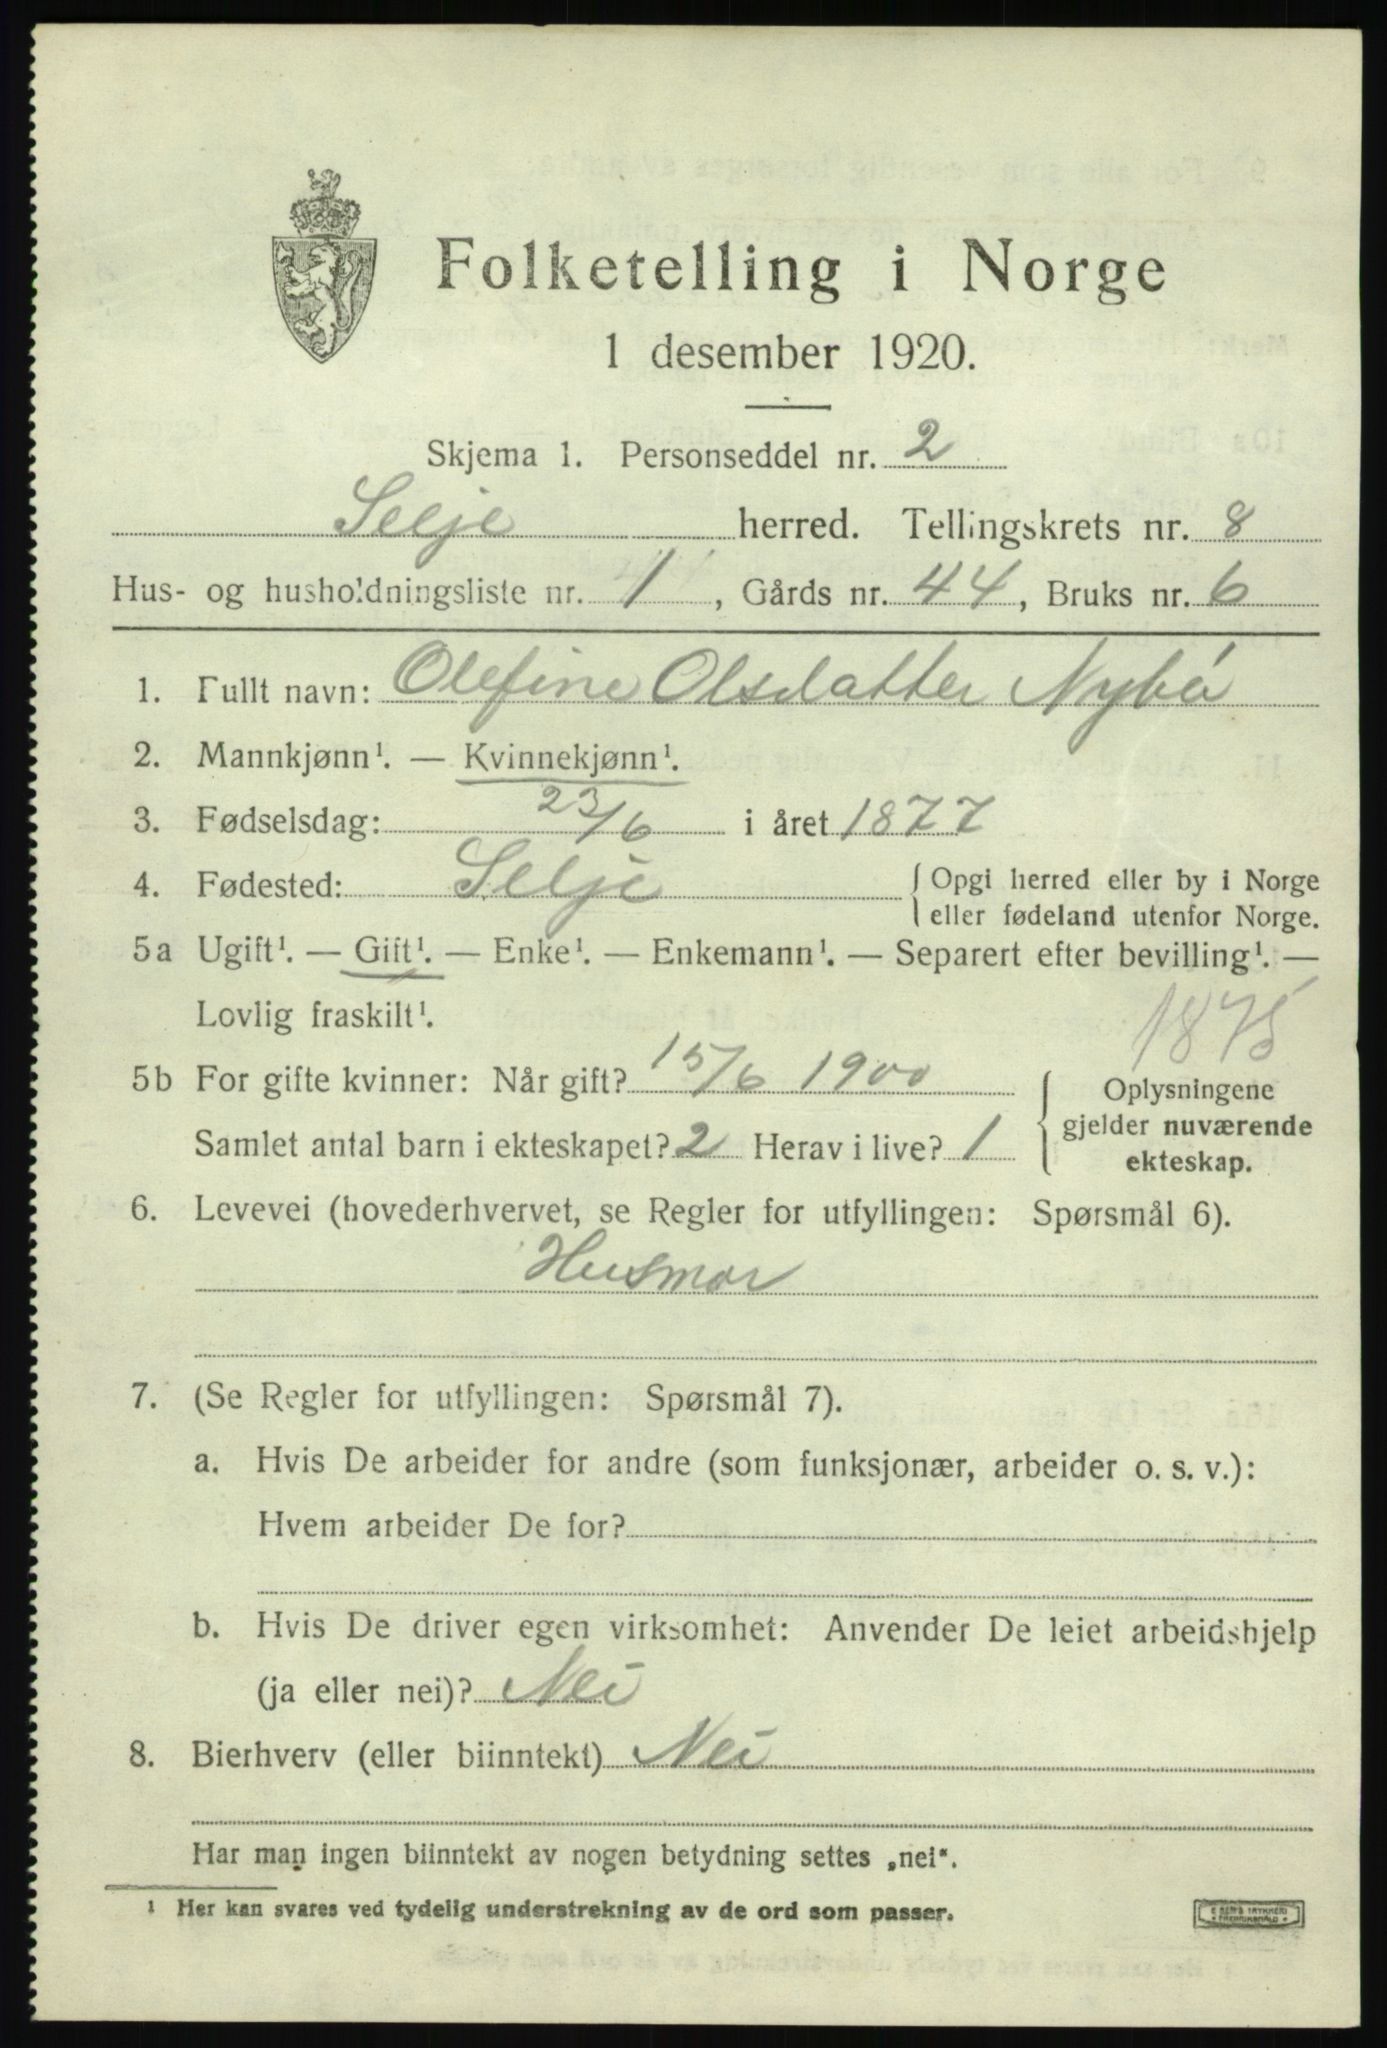 Folketelling i Norge
1 desember 1920.
Skjema 1. Personseddel nr. 2
Selje herred. Tellingskrets nr. 8
Hus- og husholdningsliste nr. 1, Gårds nr. 44, Bruks nr. 6
1. Fullt navn: Olefine Olsdatter Nybö
2. Mannkjønn¹. — Kvinnekjønn¹.
3. Fødselsdag: 23/6 i året 1877
4. Fødested: Selje { Opgi herred eller by i Norge
eller fødeland utenfor Norge.
5a Ugift¹. — Gift¹. — Enke¹. — Enkemann¹. — Separert efter bevilling¹. —
Lovlig fraskilt¹.
1875
5b For gifte kvinner: Når gift? 15/6 1900
Samlet antal barn i ekteskapet? 2 Herav i live? 1
Oplysningene
gjelder nuværende
ekteskap.
6. Levevei (hovederhvervet, se Regler for utfyllingen: Spørsmål 6).
Husmor
7. (Se Regler for utfyllingen: Spørsmål 7).
a. Hvis De arbeider for andre (som funksjonær, arbeider o. s. v.):
Hvem arbeider De for?
b. Hvis De driver egen virksomhet: Anvender De leiet arbeidshjelp
(ja eller nei)? Nei
8. Bierhverv (eller biinntekt) Nei
Har man ingen biinntekt av nogen betydning settes „nei“.
¹ Her kan svares ved tydelig understrekning av de ord som passer.